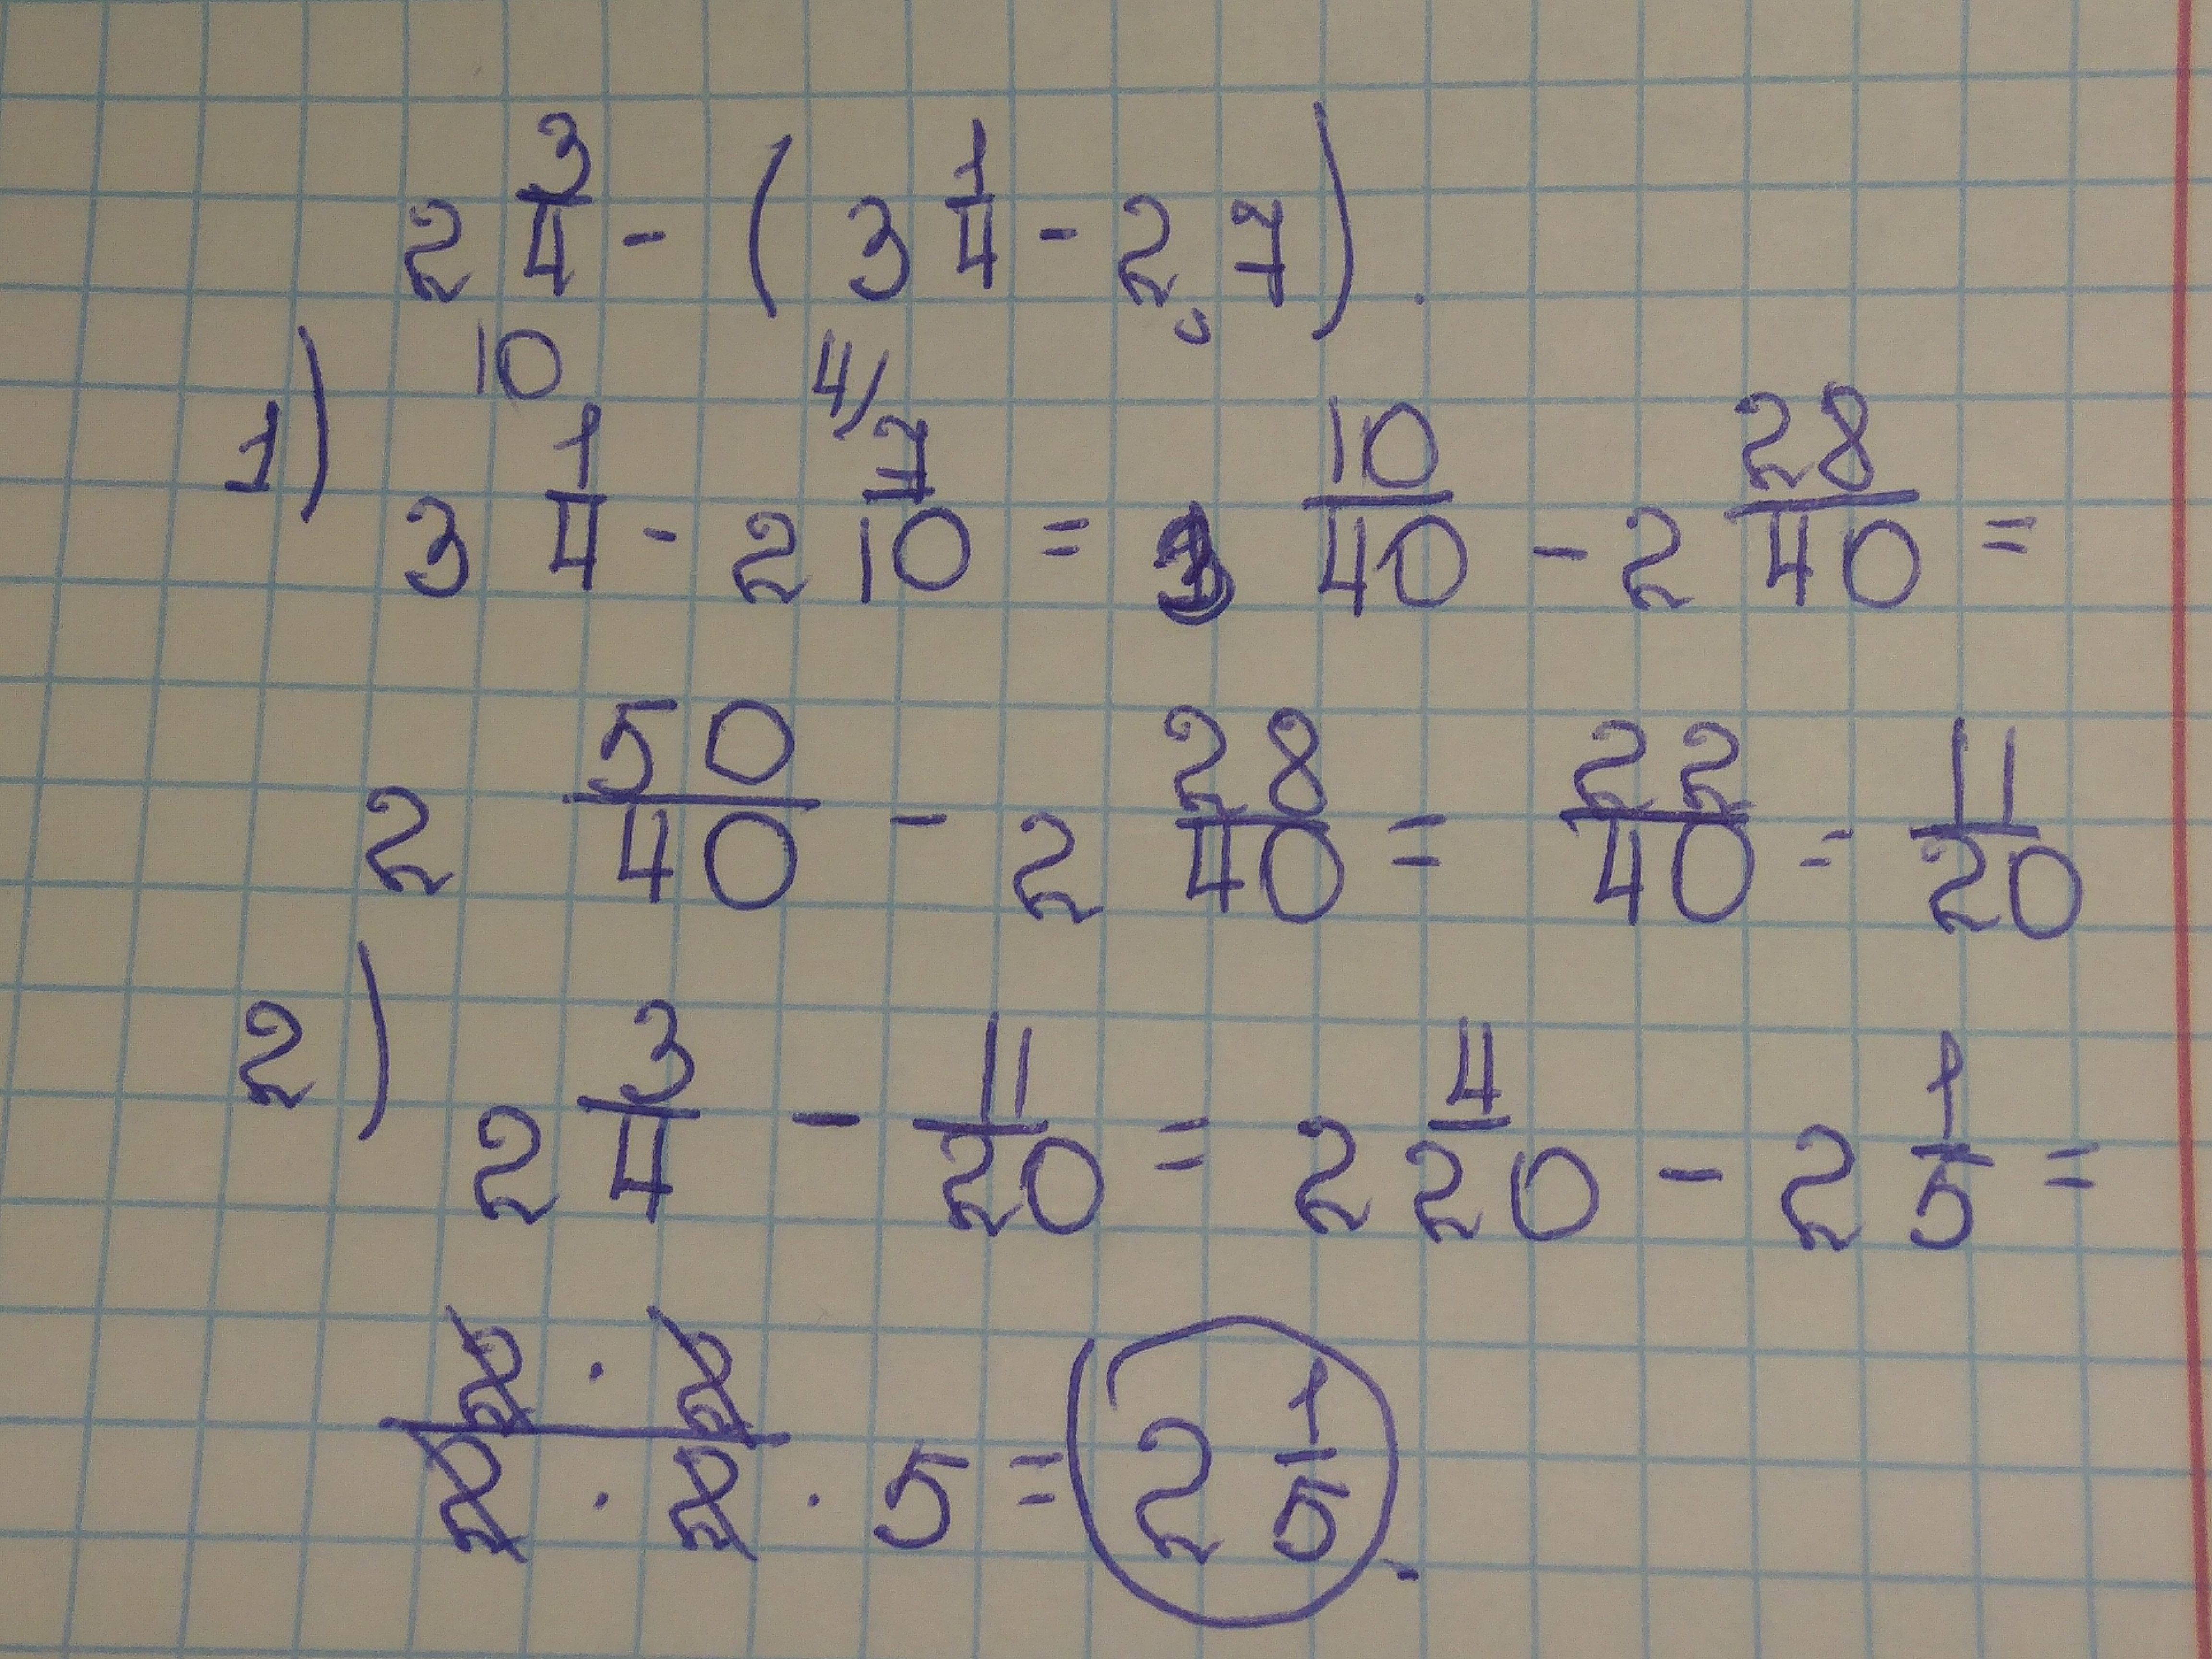 2 3/4 - ( 3 1/4 - 2,7 ).
10 4/
1) 3 1/4 - 2 7/10 = 3 10/40 - 2 28/40 =
2 50/40 - 2 28/40 = 22/40 = 11/20
2) 2 3/4 - 11/20 = 2 4/20 - 2 1/5 =
2 · 2 / 2 · 2 · 5 = 2 1/5.